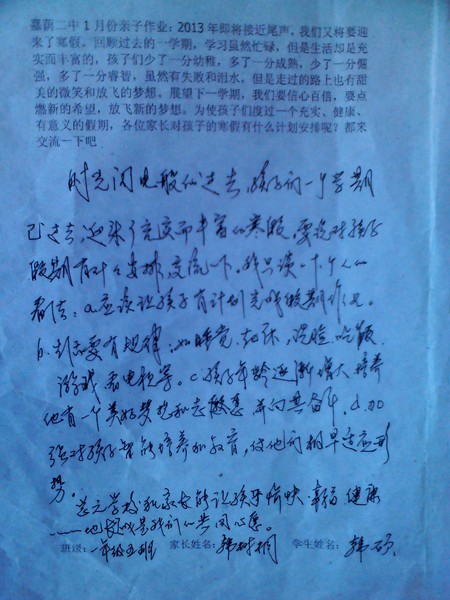 嘉荫二中1月份亲子作业：2013年即将接近尾声，我们又将要迎
来了寒假。回顾过去的一学期，学习虽然忙碌，但是生活却是充
实而丰富的，孩子们少了一分幼稚，多了一分成熟，少了一分倔
强，多了一分睿智，虽然有失败和泪水。但是走过的路上也有甜
美的微笑和放飞的梦想。展望下一学期，我们要信心百倍，要点
燃新的希望，放飞新的梦想。为使孩子们度过一个充实、健康、
有意义的假期，各位家长对孩子的寒假有什么计划安排呢？都来
交流一下吧
时光闪电般似过去，孩子们一个学期
已过去，迎来了充实而丰富的寒假，要说对孩子
假期有什么安排，交流一下。我只谈一下个人的
看法：a.应该让孩子有计划完成假期作业。
b.要有规律：如睡觉、起床，洗脸、吃饭
游戏看电视等。c.孩子年龄逐渐增大培养
他有一个美好梦想和志愿 d.加
强对孩子智能培养和教育，使他们早适应形
势。
学校和家长能让孩子愉快、幸福、健康
成是我们的共同心愿。
班级：一年级五班 家长姓名：韩树桐 学生姓名：韩硕